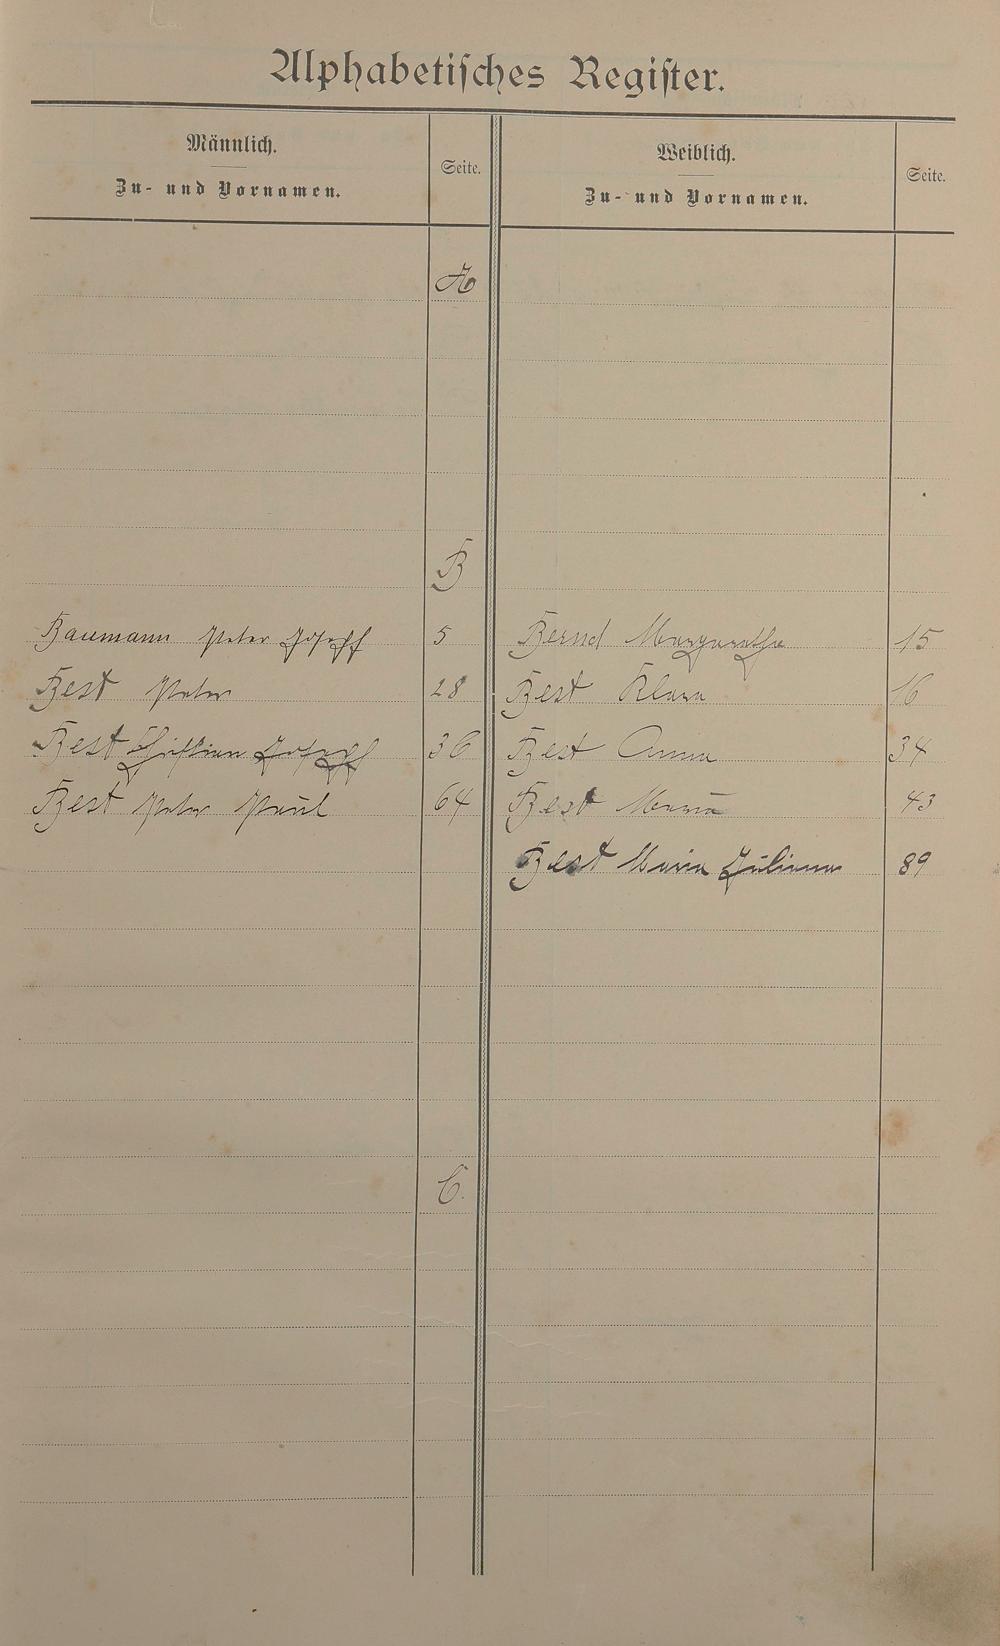 Alphabetisches Register.
Männlich.
Zu- und Vornamen.
Seite.
Weiblich.
Zu- und Vornamen.
Seite.
A
B
Baumann Peter Joseph 5 Bernd Margaretha 15
Best Peter 28 Best Klara 16
Best Christian Joseph 36 Best Anna 34
Best Peter Paul 64 Best Maria 43
Best Maria Juliana 89
C.